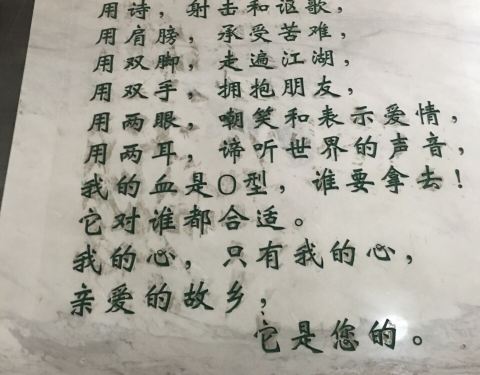 用诗，射击和讴歌，
用肩膀，承受苦难，
用双脚，走遍江湖，
用双手，拥抱朋友，
用两眼，嘲笑和表示爱情，
用两耳，谛听世界的声音，
我的血是O型，谁要拿去！
它对谁都合适。
我的心，只有我的心，
亲爱的故乡，
它是您的。